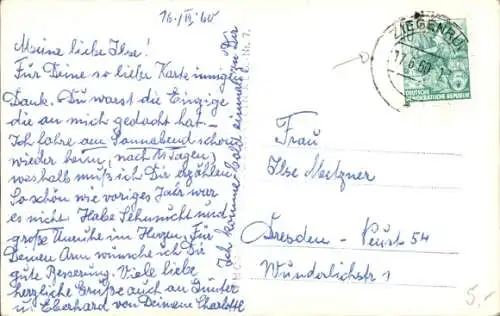 16./VI 60
Meine liebe Ilse!
Für Deine so liebe Karte innig
Dank. Du warst die Einzige
die an mich gedacht hat –
Ich fahre am Sonnabend schon
wieder heim, nach Tagen,
weshalb muß ich Dir erzählen.
So schön wie voriges Jahr war
es nicht. Habe Sehnsucht und
große Unruhe im Herzen. Für
Deinen Arm wünsche ich Dir
gute Besserung. Viele liebe
herzliche Grüße auch an Günter
u. Eberhard von Deinem Charlottl
Ich komme bald einmal zu Dir
ZIEGENRÜCK
17.6.60
DEUTSCHE
DEMOKRATISCHE REPUBLIK
5
Frau
Ilse Metzner
Dresden – Neust 54
Wunderlichstr 1
5,-